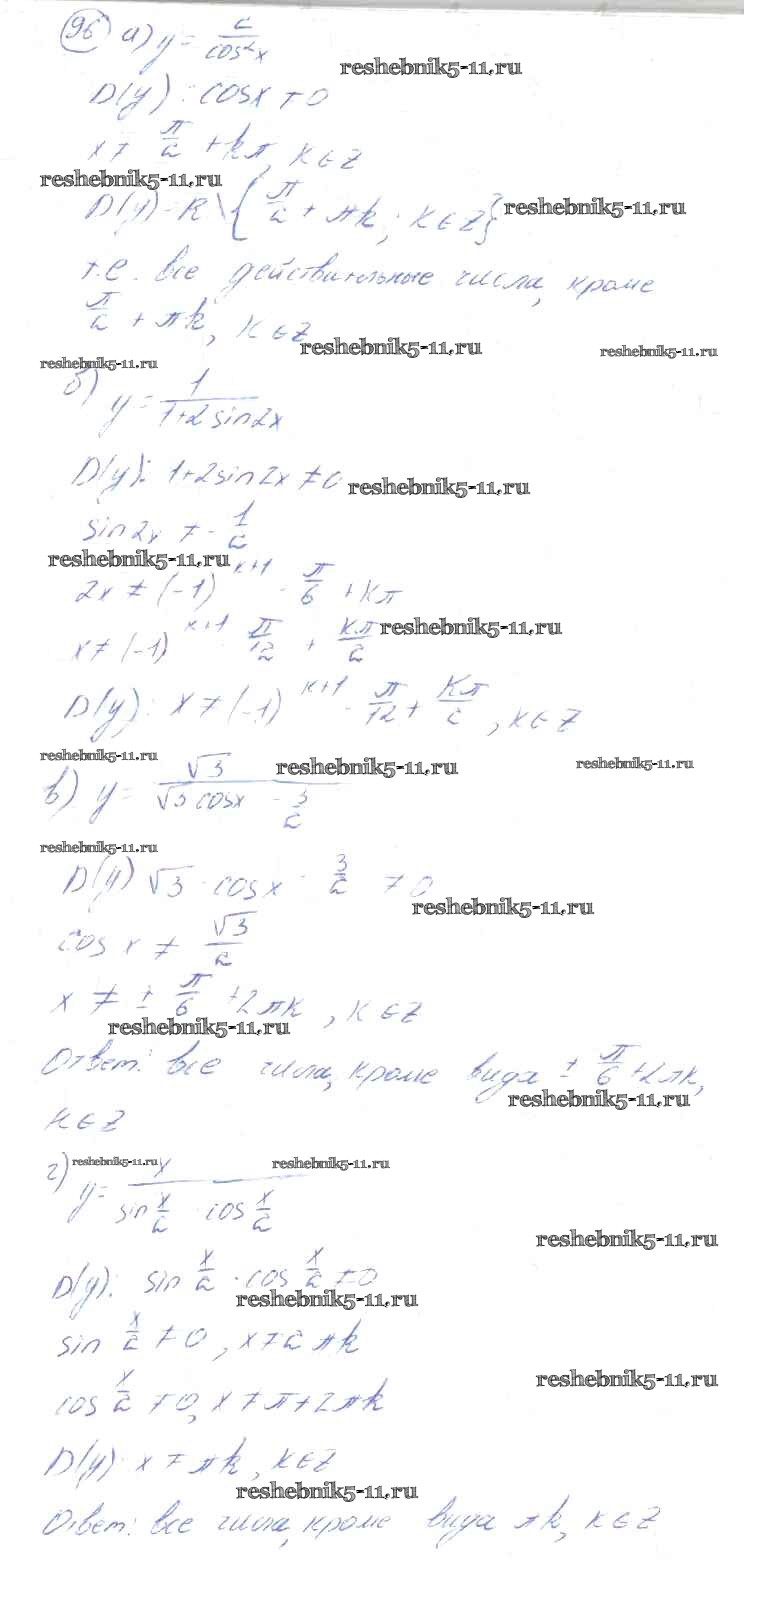 96 а) y = 2/cos²x
reshebnik5-11.ru
D(y): cosx ≠ 0
x ≠ π/2 + kπ, k ∈ Z
reshebnik5-11.ru
D(y) = R \ { π/2 + πk; k ∈ Z}
reshebnik5-11.ru
т.е. все действительные числа, кроме
π/2 + πk, k ∈ Z
reshebnik5-11.ru
reshebnik5-11.ru
reshebnik5-11.ru
б) y = 1/(1+2sin2x)
D(y): 1+2sin2x ≠ 0
reshebnik5-11.ru
sin2x ≠ -1/2
reshebnik5-11.ru
2x ≠ (-1)^(k+1) · π/6 + kπ
x ≠ (-1)^(k+1) · π/12 + kπ/2
reshebnik5-11.ru
D(y): x ≠ (-1)^(k+1) · π/12 + kπ/2, k ∈ Z
reshebnik5-11.ru
reshebnik5-11.ru
reshebnik5-11.ru
в) y = √3/(√3 cosx - 3/2)
reshebnik5-11.ru
D(y) √3 · cosx - 3/2 ≠ 0
reshebnik5-11.ru
cos x ≠ √3/2
x ≠ ± π/6 + 2πk, k ∈ Z
reshebnik5-11.ru
Ответ: все числа, кроме вида ± π/6 + 2πk,
reshebnik5-11.ru
k ∈ Z
reshebnik5-11.ru
reshebnik5-11.ru
г) y = x/(sin x/2 · cos x/2)
reshebnik5-11.ru
D(y): sin x/2 · cos x/2 ≠ 0
reshebnik5-11.ru
sin x/2 ≠ 0, x ≠ 2πk
reshebnik5-11.ru
cos x/2 ≠ 0, x ≠ π + 2πk
D(y): x ≠ πk, k ∈ Z
reshebnik5-11.ru
Ответ: все числа, кроме вида πk, k ∈ Z